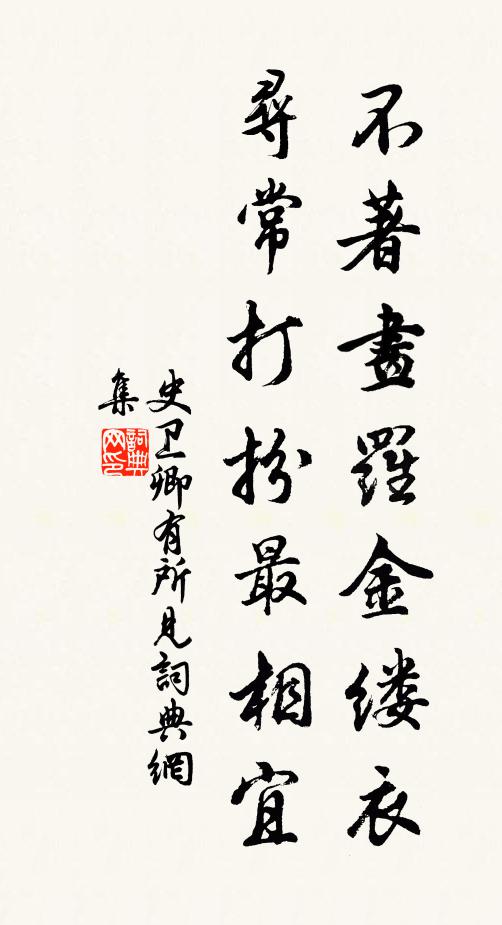 不著畫羅金缕衣
尋常打扮最相宜
史卫卿有所見詞典網
集
詞典网印